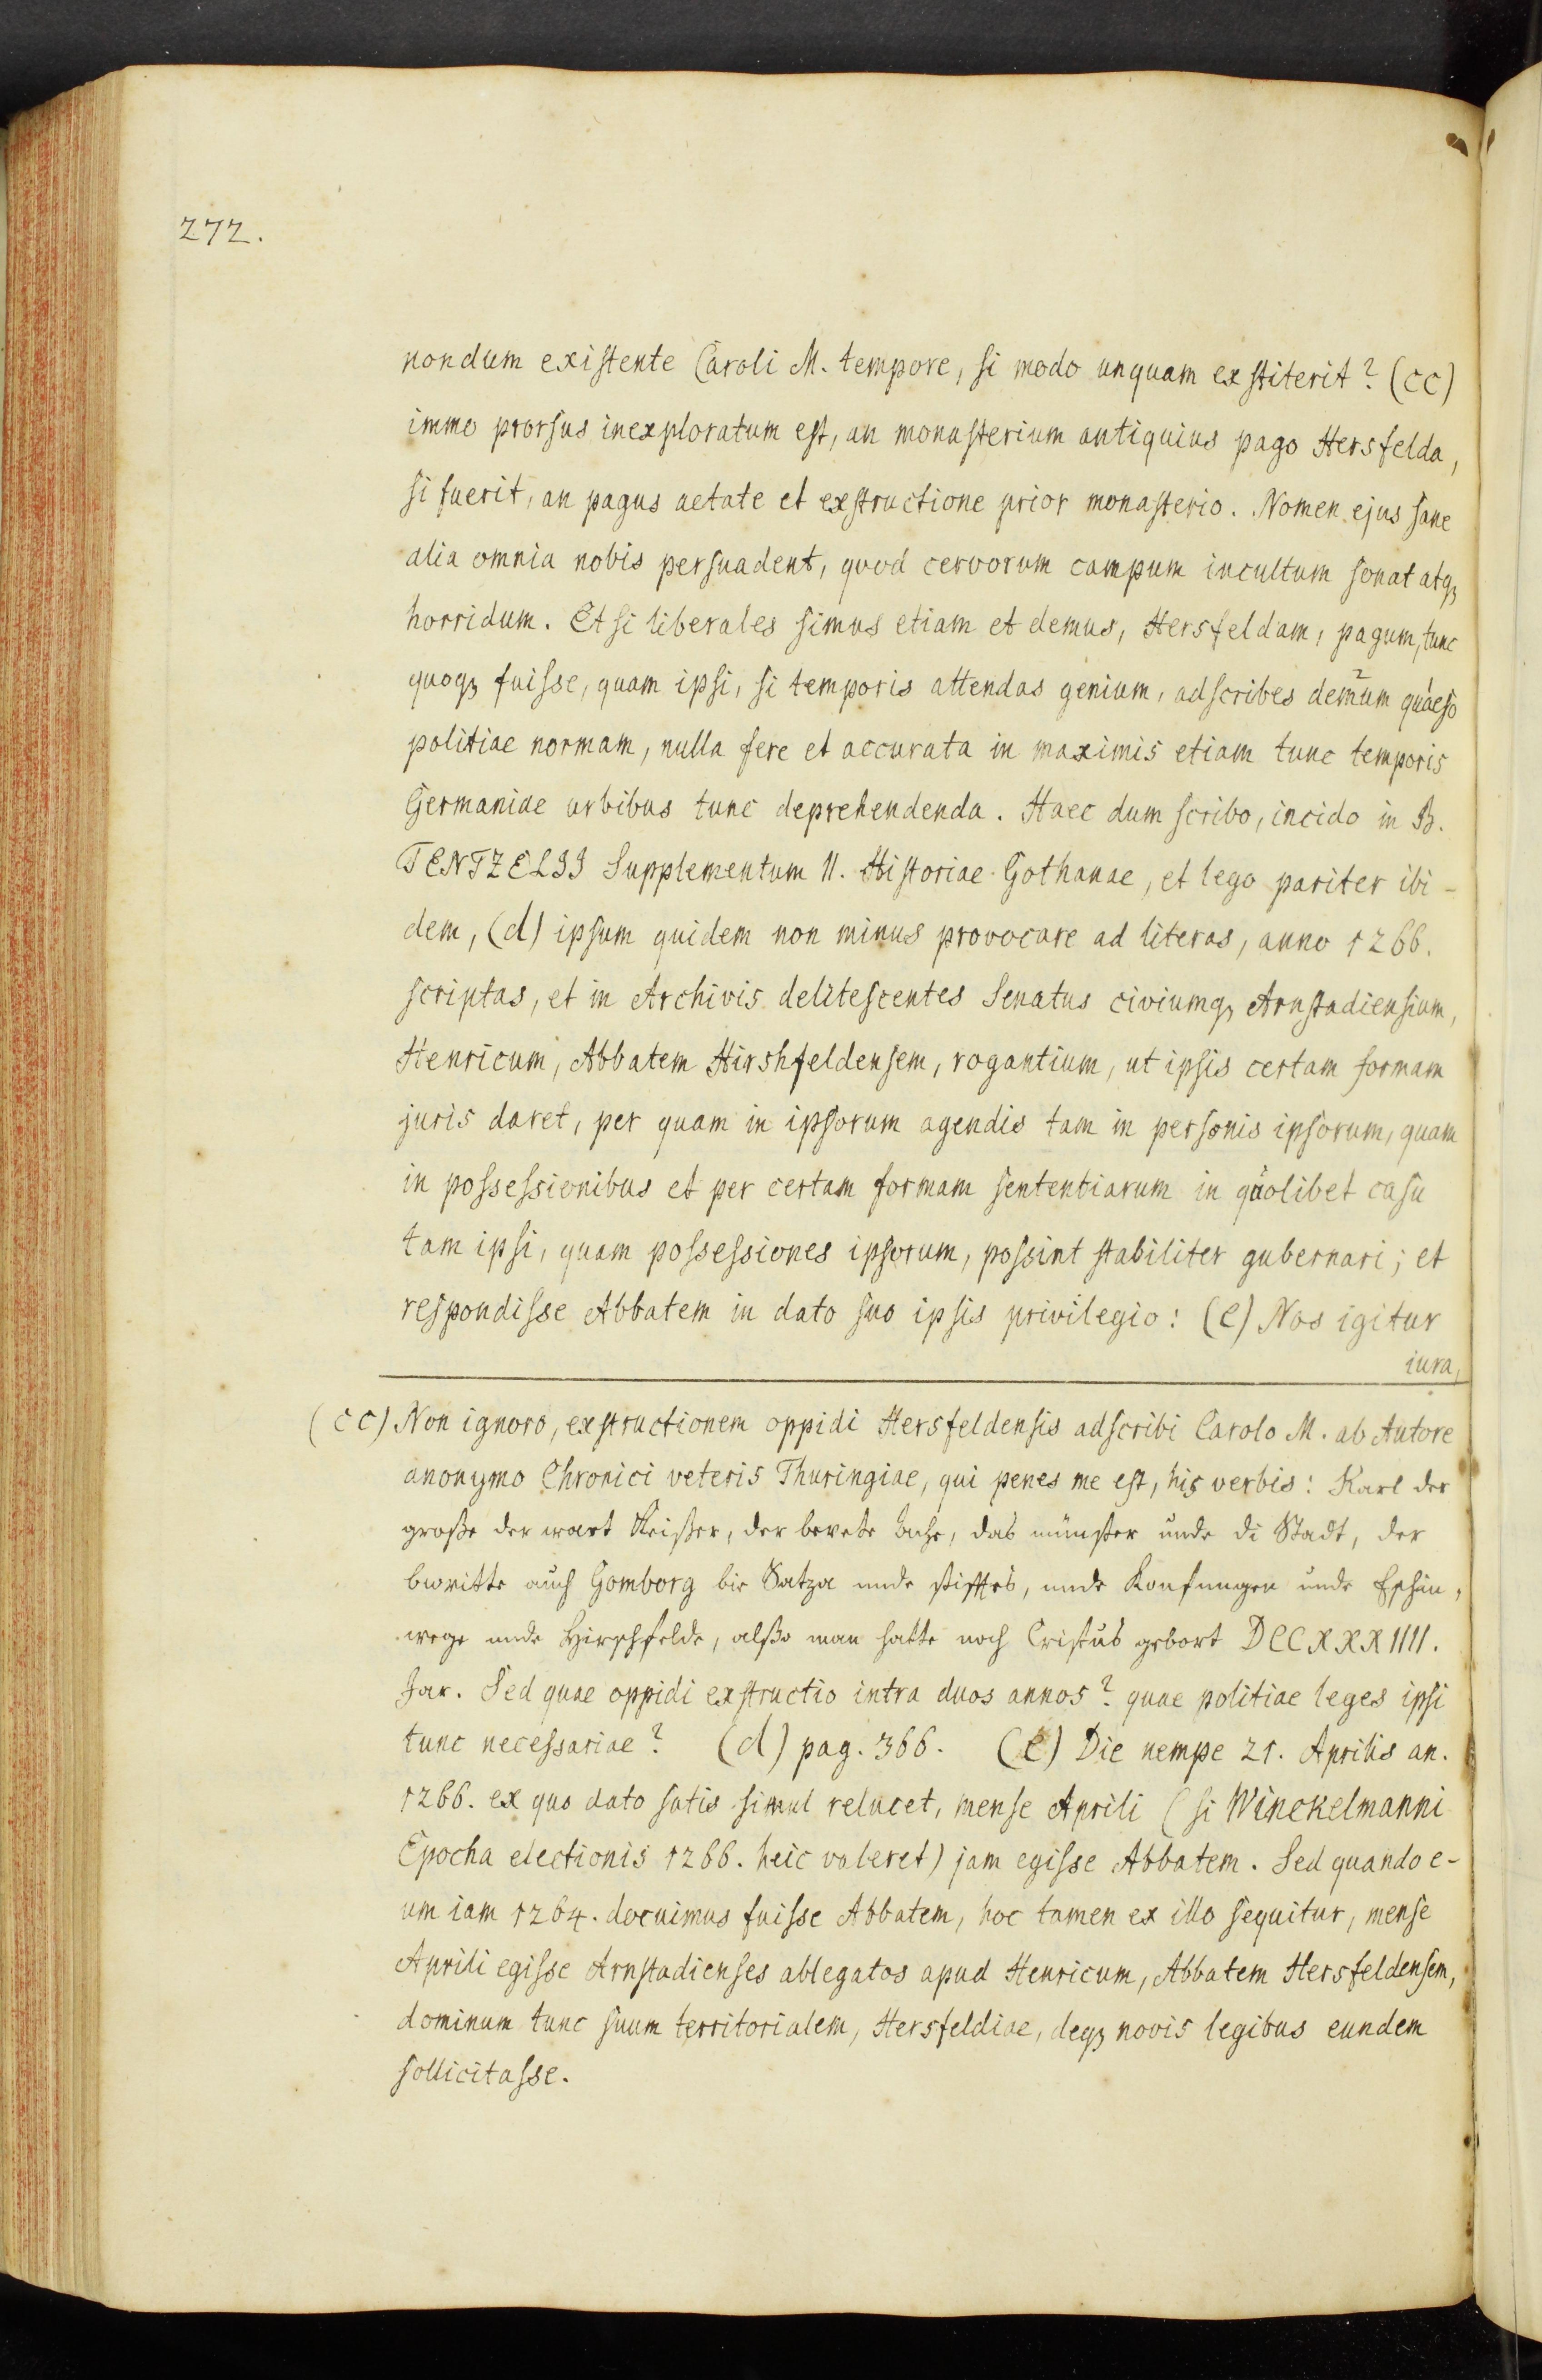 272.
nondum existente Caroli M. tempore, si modo unquam exstiterit? (cc)
immo prorsus inexploratum est, an monasterium antiquius pago Hersfelda,
si fuerit, an pagus aetate et exstructione prior monasterio. Nomen ejus sane
alia omnia nobis persuadent, quod cervorum campum incultum sonat atq₃
horridum. Et si liberales simus etiam et demus, Hersfeldam, pagum, tunc
quoq₃ fuisse, quam ipsi, si temporis attendas genium, adscribes demum² quaeso¹
politiae normam, nulla fere et accurata in maximis etiam tunc temporis
Germaniae urbibus tunc deprehendenda. Haec dum scribo, incido in B.
TENTZELII Supplementum II. Historiae Gothanae, et lego pariter ibi-
dem, (d) ipsum quidem non minus provocare ad literas, anno 1266.
scriptas, et in Archivis delitescentes Senatus civiumq₃ Arnstadiensium,
Henricum, Abbatem Hirshfeldensem, rogantium, ut ipsis certam formam
juris daret, per quam in ipsorum agendis tam in personis ipsorum, quam
in possessionibus et per certam formam sententiarum in quolibet casu
tam ipsi, quam possessiones ipsorum, possint stabiliter gubernari; et
respondisse Abbatem in dato suo ipsis privilegio: (e) Nos igitur
iura,
(cc) Non ignoro, exstructionem oppidi Hersfeldensis adscribi Carolo M. ab Autore
anonymo Chronici veteris Thuringiae, qui penes me est, his verbis: Karl der
große der wart Keißer, der bevete, das münster unde di Stadt, der
auch Gomborg bie Satza unde stifftes, unde Konfungen unde Eschin-
wege unde Hirschfelde, alßo man hatte noch Cristus gebort DCCXXXIIII.
Jar. Sed quae oppidi exstructio intra duos annos? quae politiae leges ipsi
tunc necessariae? (d) pag. 366. (e) Die nempe 21. Aprilis an.
1266. ex quo dato satis simul relucet, mense Aprili (si Winckelmanni
Epocha electionis 1266. heic valeret) jam egisse Abbatem. Sed quando e-
um iam 1264. docuimus fuisse Abbatem, hoc tamen ex illo sequitur, mense
Aprili egisse Arnstadienses ablegatos apud Henricum, Abbatem Hersfeldensem,
dominum tunc suum territorialem, Hersfeldiae, deq₃ novis legibus eundem
sollicitasse.